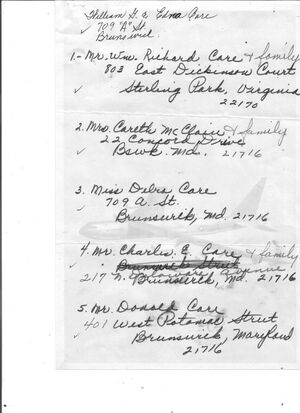 William G. & Edna Care
✓ 709 "A" St.
Brunswick
1.- Mr. Wm. Richard Care & family
803 East Dickinson Court
✓ Sterling Park, Virginia
22170
2. Mrs. Careth McClain & family
22 Concord Drive
✓ Bswk. Md. 21716
3. Miss Debra Care
✓ 709 A. St.
Brunswick, Md. 21716
4. Mr. Charles E. Care & family
✓ Brunswick Street
217 N. Avenue
Brunswick, Md. 21716
5. Mr. Donald Care
401 West Potomac Street
✓ Brunswick, Maryland
21716